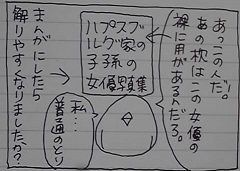 あっこの人だ!
あの枕はこの女優の
裸に用があるんだろ。
ハプスブ
ルグ家の
子孫の
女優写真集
私…
普通のとり
まんがにしたら
解りやすくなりましたか?